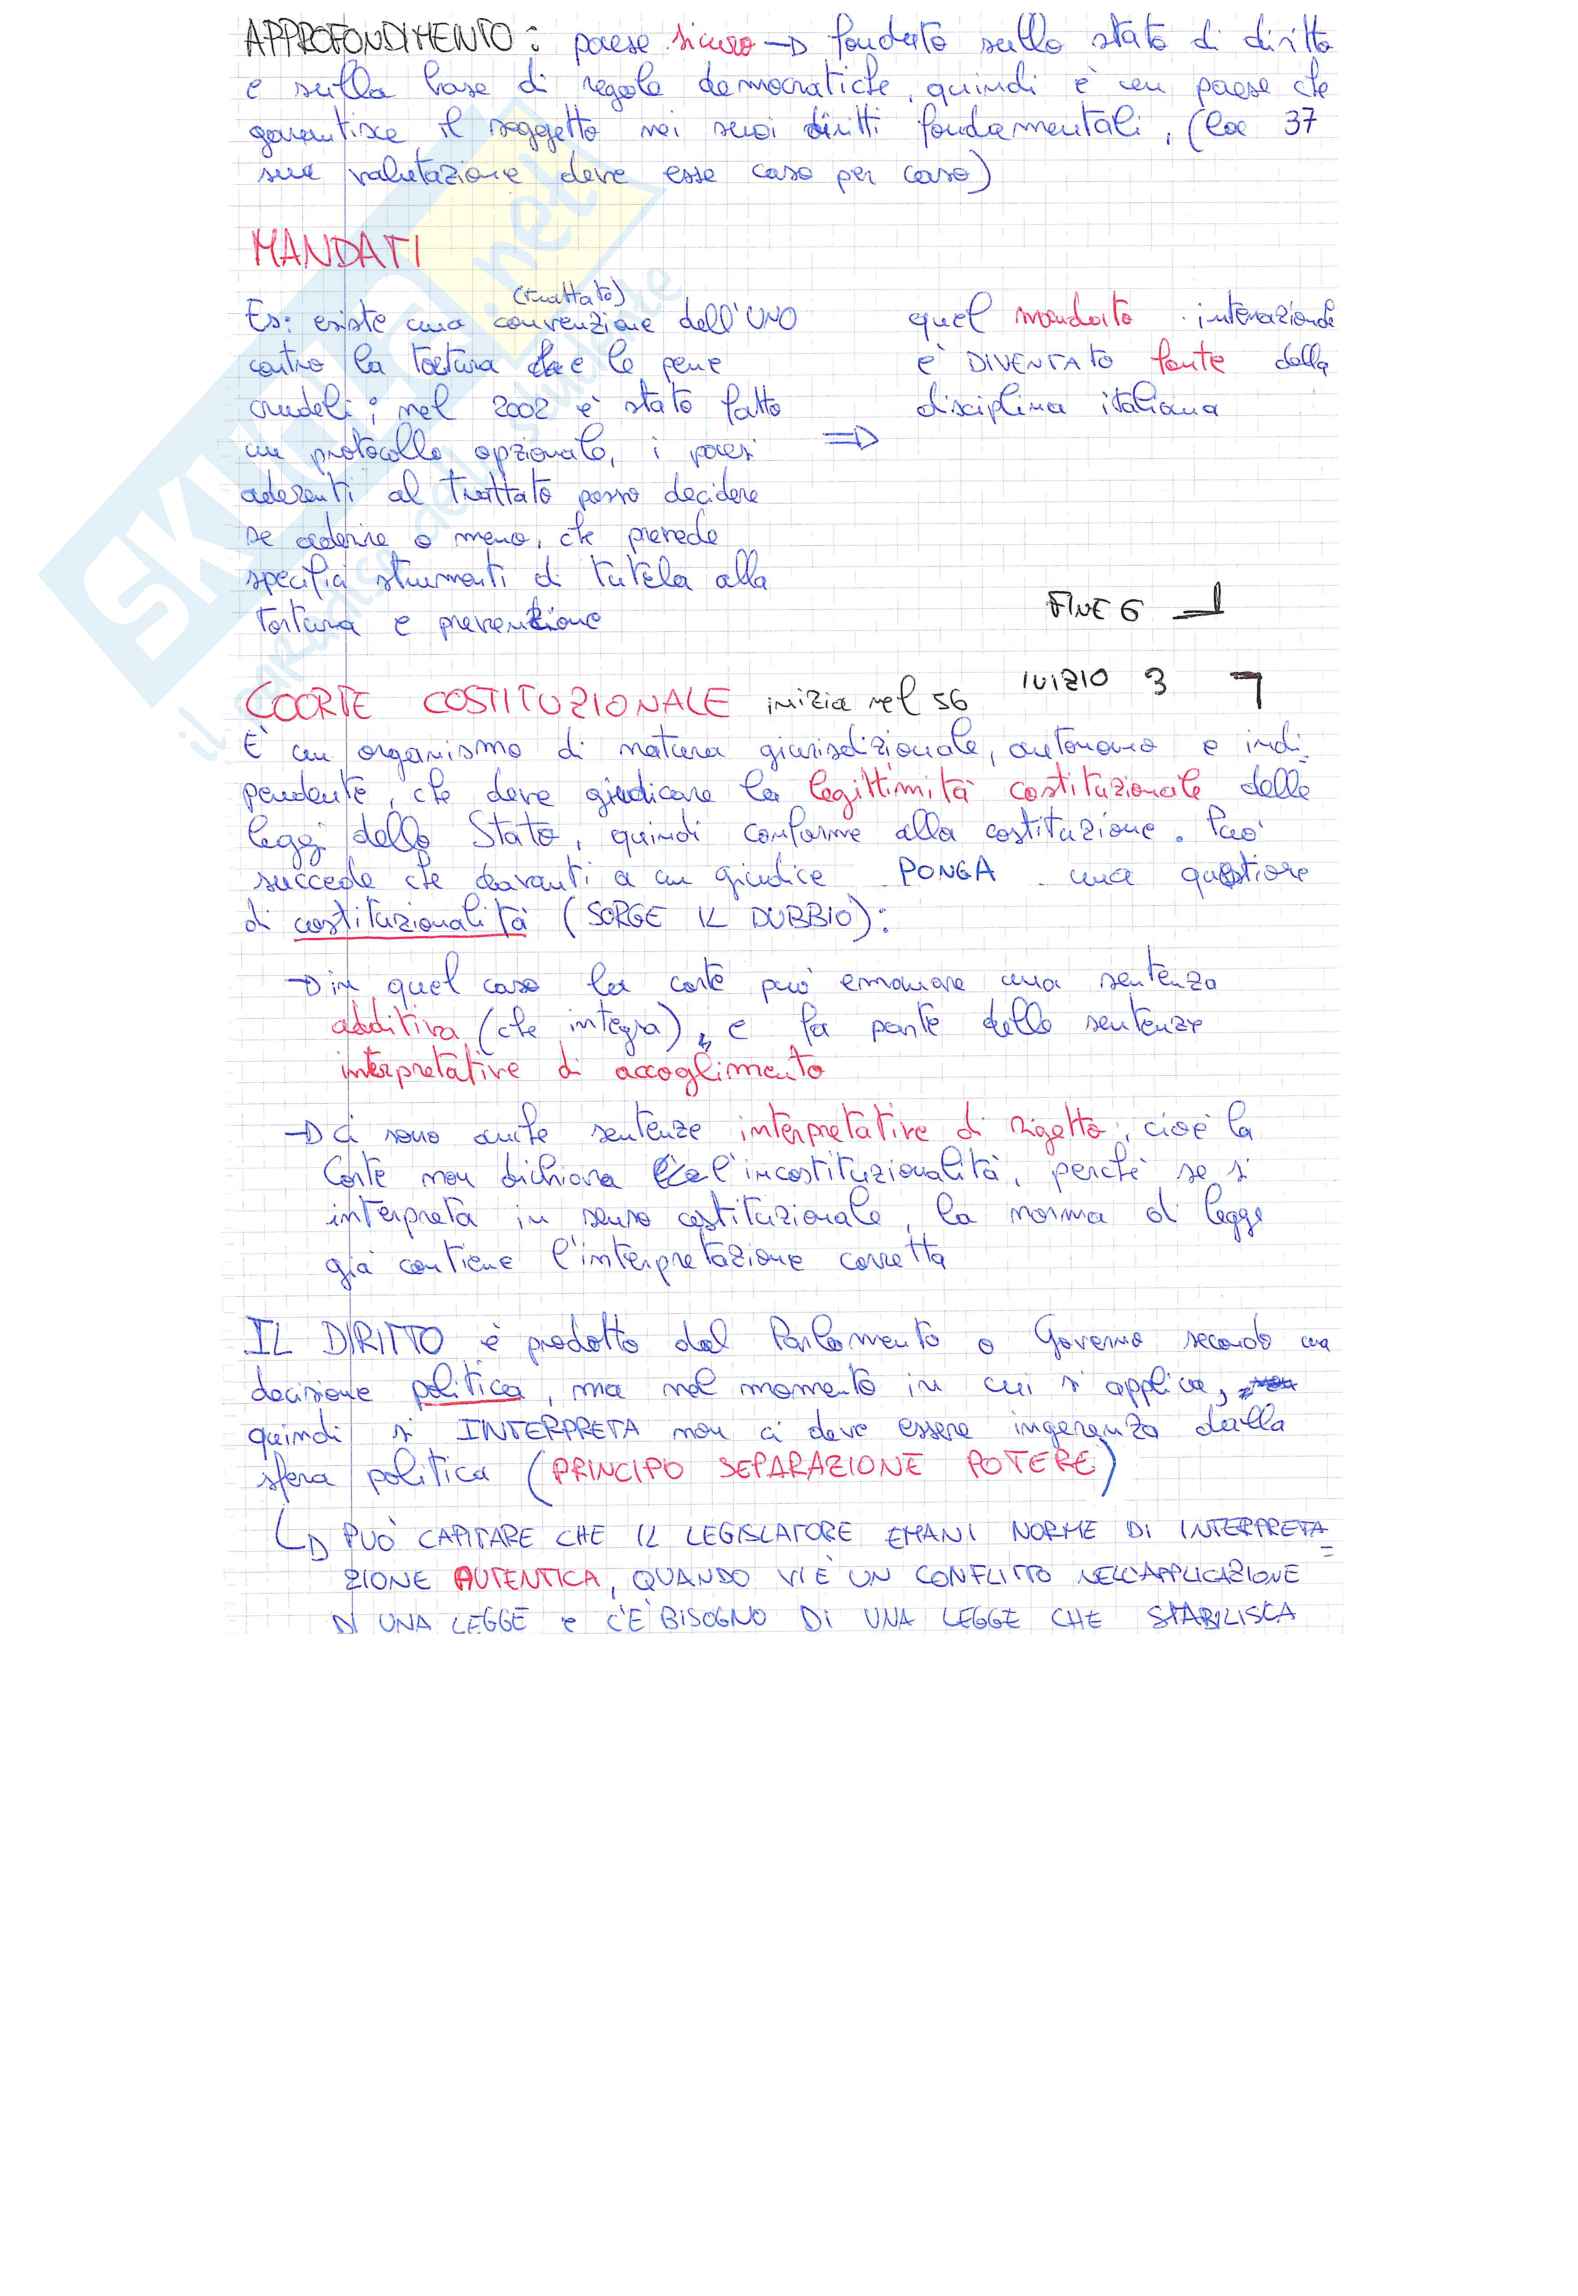 APPROFONDIMENTO: paese sicuro → fondato sullo stato di diritto
e sulla base di regole democratiche, quindi è un paese che
garantisce il soggetto nei suoi diritti fondamentali, (la 37
sua valutazione deve esse caso per caso)
MANDATI
(trattato)
Es: esiste una convenzione dell'UNO
contro la tortura e le pene
crudeli; nel 2002 è stato fatto
un protocollo opzionale, i paesi
aderenti al trattato posso decidere
se aderire o meno, che prevede
specifici strumenti di tutela alla
tortura e prevenzione
⇒
quel mandato internazionale
è DIVENTATO fonte della
disciplina italiana
FINE 6
COORTE COSTITUZIONALE inizia nel 56 INIZIO 3 7
È un organismo di natura giurisdizionale, autonomo e indi-
pendente, che deve giudicare la legittimità costituzionale delle
leggi dello Stato, quindi conforme alla costituzione. Può
succede che davanti a un giudice PONGA una questione
di costituzionalità (SORGE IL DUBBIO):
→ in quel caso la corte può emanare una sentenza
additiva (che integra), e fa parte delle sentenze
interpretative di accoglimento
→ Ci sono anche sentenze interpretative di rigetto, cioè la
Corte non dichiara l'incostituzionalità, perché se si
interpreta in senso costituzionale, la norma di legge
già contiene l'interpretazione corretta
IL DIRITTO è prodotto dal Parlamento o Governo secondo una
decisione politica, ma nel momento in cui si applica,
quindi si INTERPRETA non ci deve essere ingerenza dalla
sfera politica (PRINCIPO SEPARAZIONE POTERE)
↳ PUÒ CAPITARE CHE IL LEGISLATORE EMANI NORME DI INTERPRETA=
ZIONE AUTENTICA, QUANDO VI È UN CONFLITTO NELL'APPLICAZIONE
DI UNA LEGGE e C'È BISOGNO DI UNA LEGGE CHE STABILISCA